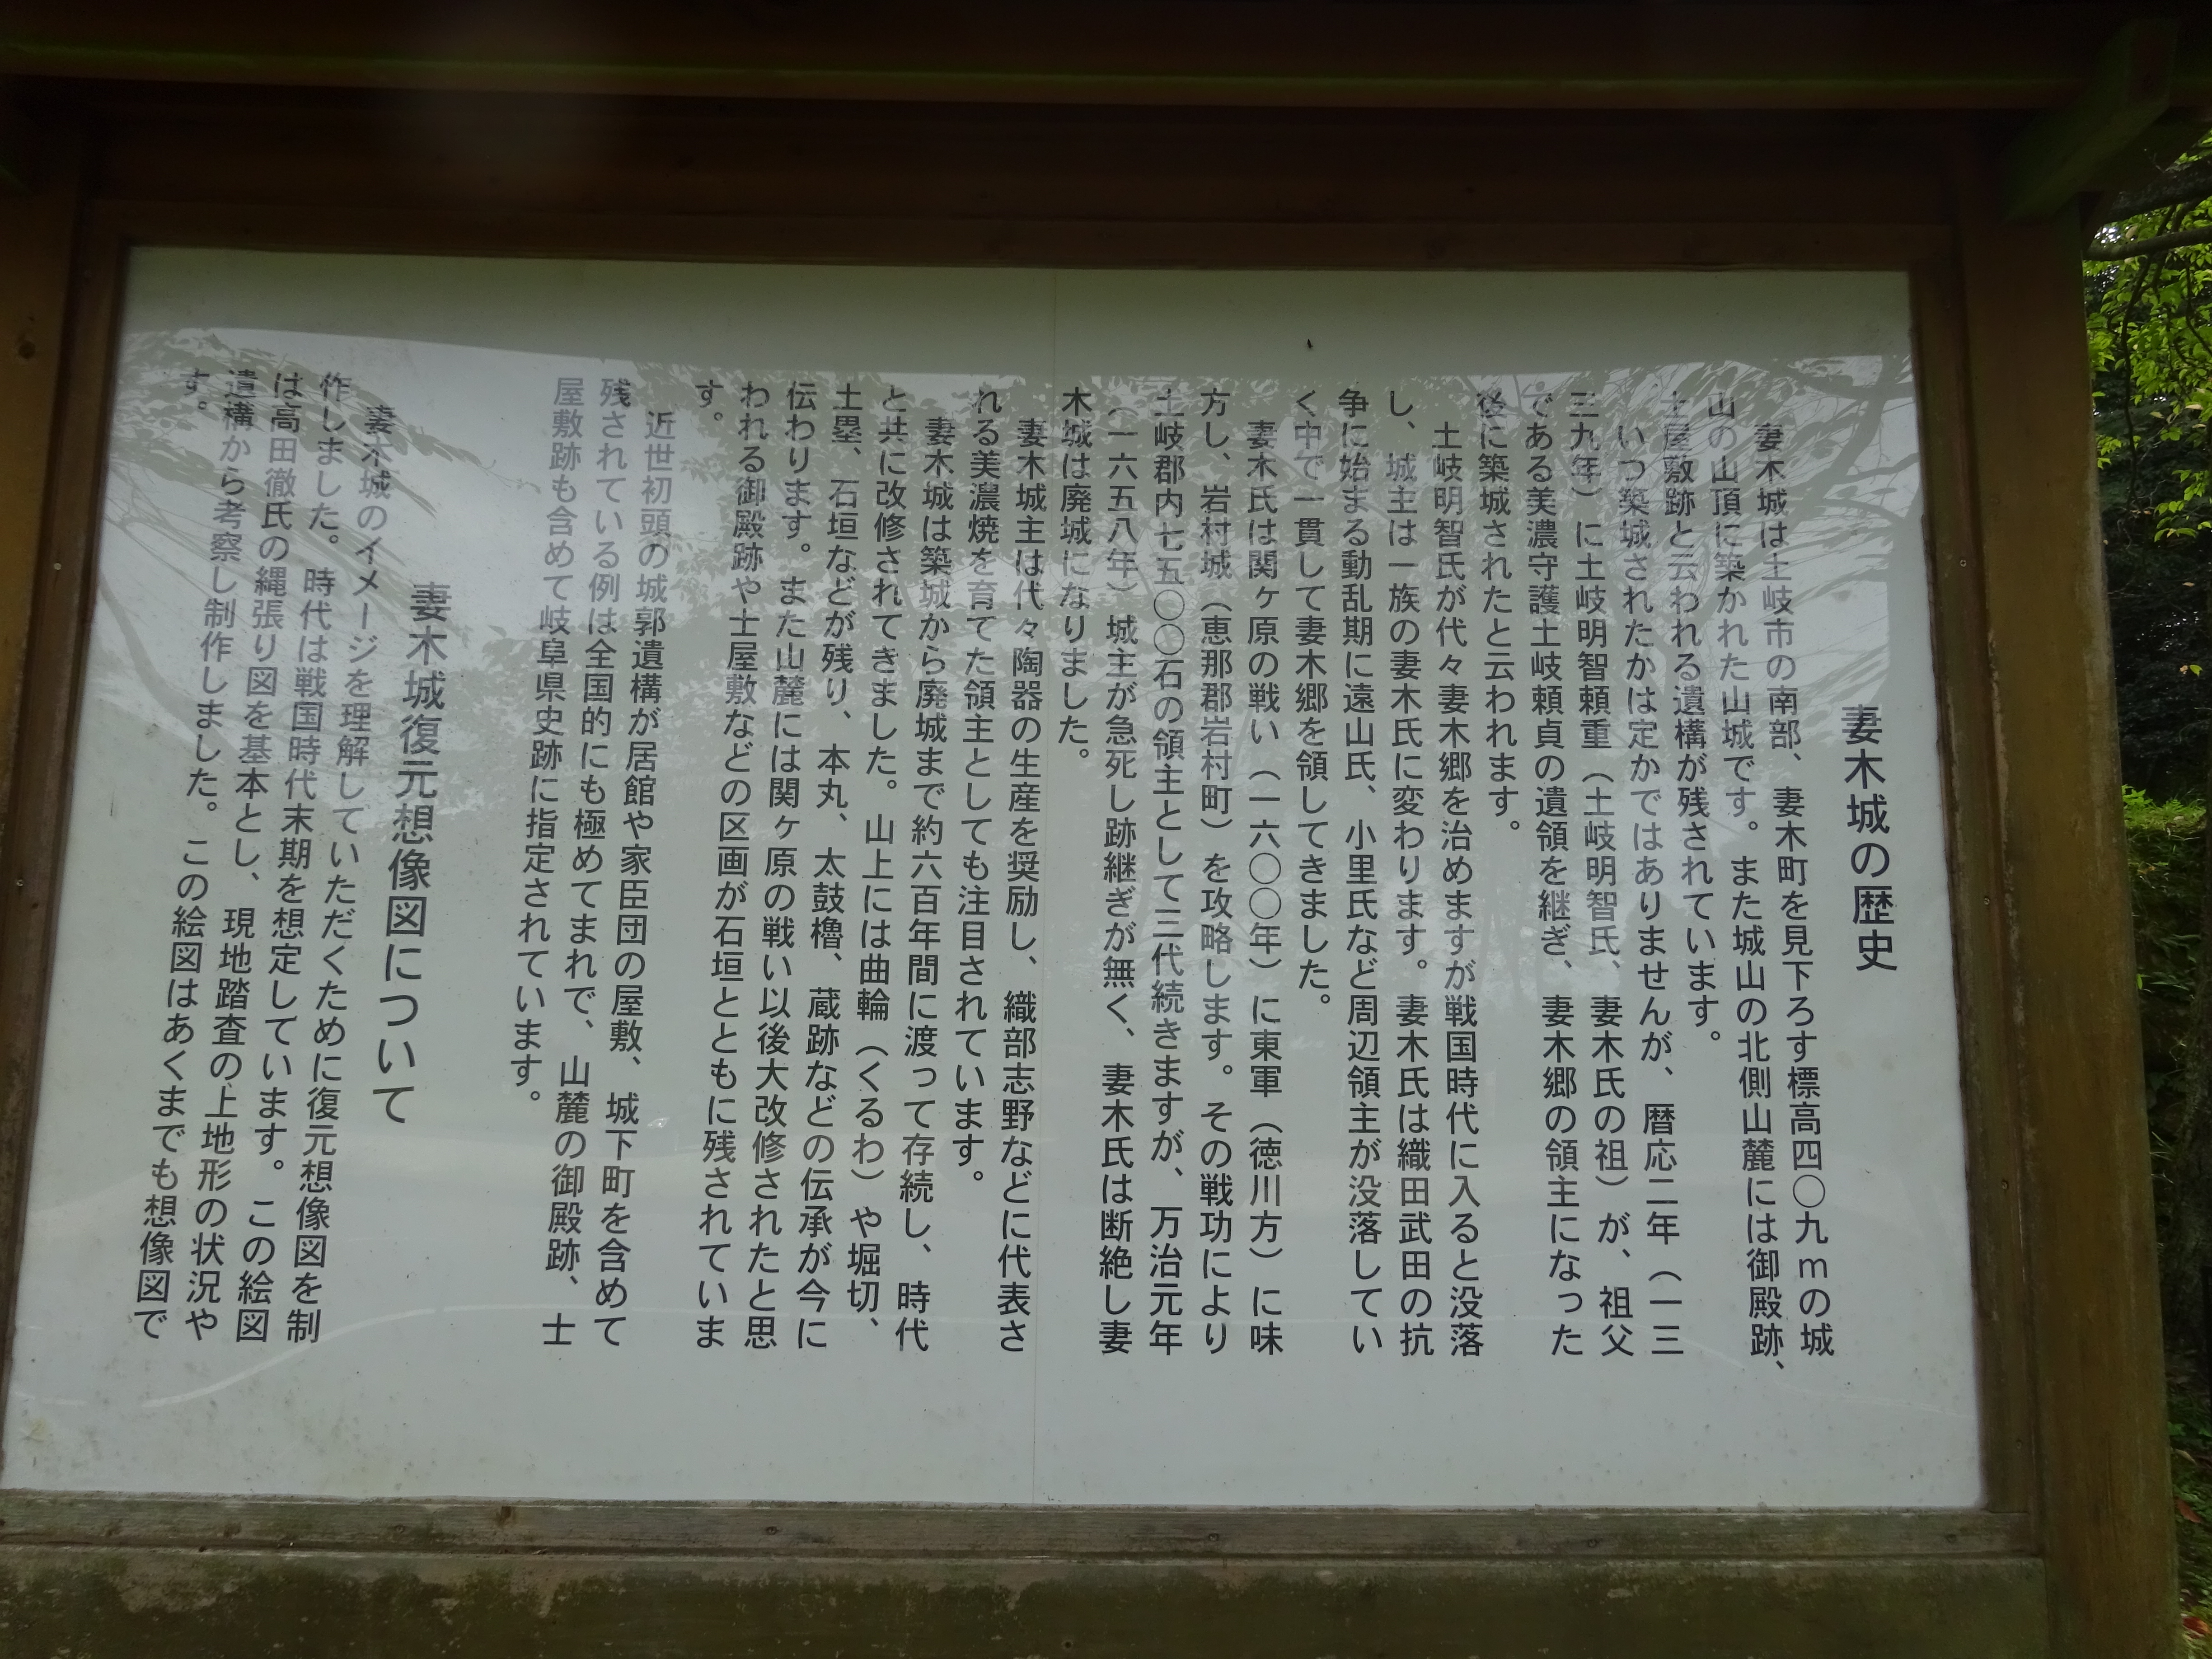 妻木城の歴史
妻木城は土岐市の南部、妻木町を見下ろす標高四〇九mの城
山の山頂に築かれた山城です。また城山の北側山麓には御殿跡、
士屋敷跡と云われる遺構が残されています。
いつ築城されたかは定かではありませんが、暦応二年（一三
三九年）に土岐明智頼重（土岐明智氏、妻木氏の祖）が、祖父
である美濃守護土岐頼貞の遺領を継ぎ、妻木郷の領主になった
後に築城されたと云われます。
土岐明智氏が代々妻木郷を治めますが戦国時代に入ると没落
し、城主は一族の妻木氏に変わります。妻木氏は織田武田の抗
争に始まる動乱期に遠山氏、小里氏など周辺領主が没落してい
く中で一貫して妻木郷を領してきました。
妻木氏は関ヶ原の戦い（一六〇〇年）に東軍（徳川方）に味
方し、岩村城（恵那郡岩村町）を攻略します。その戦功により
土岐郡内七五〇〇石の領主として三代続きますが、万治元年
（一六五八年）城主が急死し跡継ぎが無く、妻木氏は断絶し妻
木城は廃城になりました。
妻木城主は代々陶器の生産を奨励し、織部志野などに代表さ
れる美濃焼を育てた領主としても注目されています。
妻木城は築城から廃城まで約六百年間に渡って存続し、時代
と共に改修されてきました。山上には曲輪（くるわ）や堀切、
土塁、石垣などが残り、本丸、太鼓櫓、蔵跡などの伝承が今に
伝わります。また山麓には関ヶ原の戦い以後大改修されたと思
われる御殿跡や士屋敷などの区画が石垣とともに残されていま
す。
近世初頭の城郭遺構が居館や家臣団の屋敷、城下町を含めて
残されている例は全国的にも極めてまれで、山麓の御殿跡、士
屋敷跡も含めて岐阜県史跡に指定されています。
妻木城復元想像図について
妻木城のイメージを理解していただくために復元想像図を制
作しました。時代は戦国時代末期を想定しています。この絵図
は高田徹氏の縄張り図を基本とし、現地踏査の上地形の状況や
遺構から考察し制作しました。この絵図はあくまでも想像図で
す。